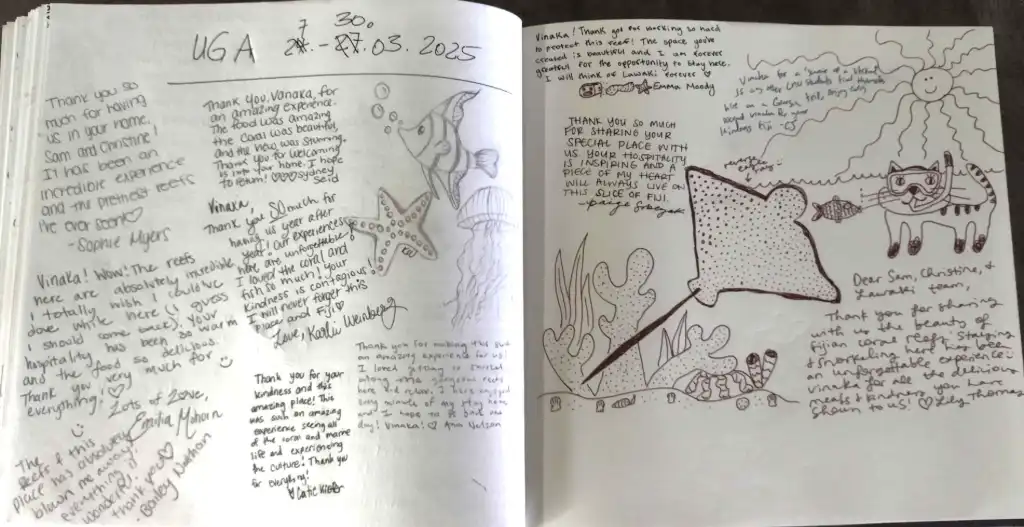 UGA 27.-30.03.2025
Thank you so
much for having
us in your home.
Sam and Christine!
It has been an
incredible experience
and the prettiest reefs
I've ever seen♡
-Sophie Myers
Thank you, Vanaka, for
an amazing experience.
The food was amazing
the coral was beautiful,
and the view was stunning.
Thank you for welcoming
us into your home. I hope
to return! ♡♡♡ Sydney
Seid
Vinaka
Thank you SO much for
having us year after
year! Our experiences
here are unforgettable
I loved the coral and
fish so much! Your
kindness is contagious!
I will never forget this
place and Fiji ♡
Love, Kaeli Weinberg
Vinaka! Wow! The reefs
here are absolutely incredible
I totally wish I could've
dove while here (I guess
I should come back). Your
hospitality has been so warm
and the food so delicious.
Thank you very much for
everything! ♡
Lots of Love,
The
Reefs & this
place has absolutely
blown me away!
everything is
wonderful.
thank you♡
-Bailey Nathan
Thank you for your
kindness and this
amazing place! This
was such an amazing
experience seeing all
of the coral and marine
life and experiencing
the culture! Thank you
for everything!
Thank you for making this such
an amazing experience for us!
I loved getting to snorkel
along some gorgeous reefs
here and relax. I have enjoyed
every minute of my stay here
and I hope to be back one
day! Vinaka! ♡ Ann Nelson
Vinaka! Thank you for working so hard
to protect this reef! The space you've
created is beautiful and I am forever
grateful for the opportunity to stay here.
I will think of Lawaki forever ♡
Emma Moody
Vinaka for a
kindness Fiji
THANK YOU SO MUCH
FOR SHARING YOUR
SPECIAL PLACE WITH
US. YOUR HOSPITALITY
IS INSPIRING AND A
PIECE OF MY HEART
WILL ALWAYS LIVE ON
THIS SLICE OF FIJI.
Dear Sam, Christine, &
Lawaki team,
Thank you for sharing
with us the beauty of
Fijian coral reefs. Staying
& snorkeling here has been
an unforgettable experience.
Vinaka for all the delicious
meals & kindness you have
shown to us! ♡ Lily Thomas